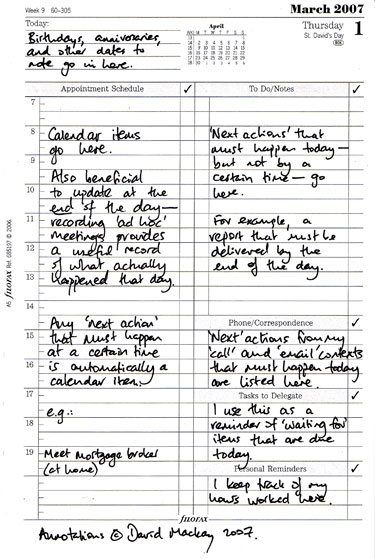 Week 9 60-305
March 2007
Today:
Birthdays, anniversaries,
and other dates to
note go in here.
April
Thursday
St. David's Day
1
Appointment Schedule ✓
To Do/Notes ✓
7
8
Calendar items
go here.
9
Also beneficial
10
to update at the
end of the day—
11
recording 'ad hoc'
meetings provides
12
a useful record
of what actually
13
happened that day.
14
Any 'next action'
15
that must happen
at a certain time
16
is automatically a
calendar item.
17
e.g.:
18
19
Meet mortgage broker
(at home)
'Next actions' that
must happen today—
but not by a
certain time—go
here.
For example, a
report that must be
delivered by the
end of the day.
Phone/Correspondence ✓
'Next' actions from my
'call' and 'email' contexts
that must happen today
are listed here.
Tasks to Delegate ✓
I use this as a
reminder of 'waiting for'
items that are due
today.
Personal Reminders ✓
I keep track of my
hours worked here.
filofax
Annotations © David Mackay 2007.